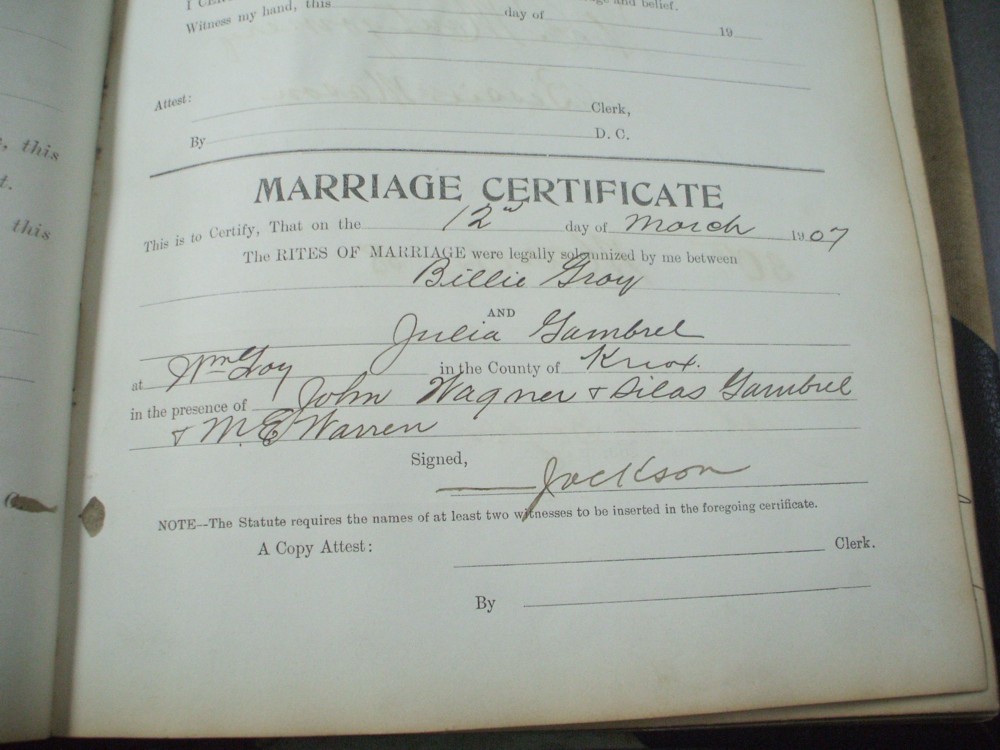 ge and belief.
Witness my hand, this day of 19
Attest: Clerk,
, this By D. C.
t.
this
MARRIAGE CERTIFICATE
This is to Certify, That on the 12" day of March 1907
The RITES OF MARRIAGE were legally solemnized by me between
Billie Gray
AND
Julia Gambrel
at Wm Gray in the County of Knox.
in the presence of John Wagner & Silas Gambrel
& M. E Warren
Signed,
Jackson
NOTE—The Statute requires the names of at least two witnesses to be inserted in the foregoing certificate.
A Copy Attest: Clerk.
By